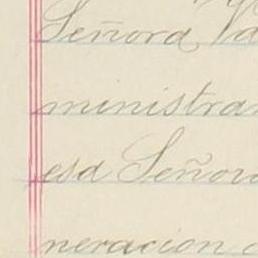 Señora Va
ministran
esa Señora
neracion